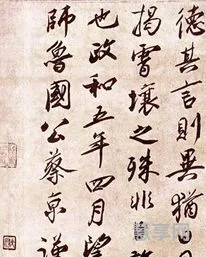 德其言則異猶日
揭霄壤之殊非
也政和五年四月望
師魯國公蔡京謹